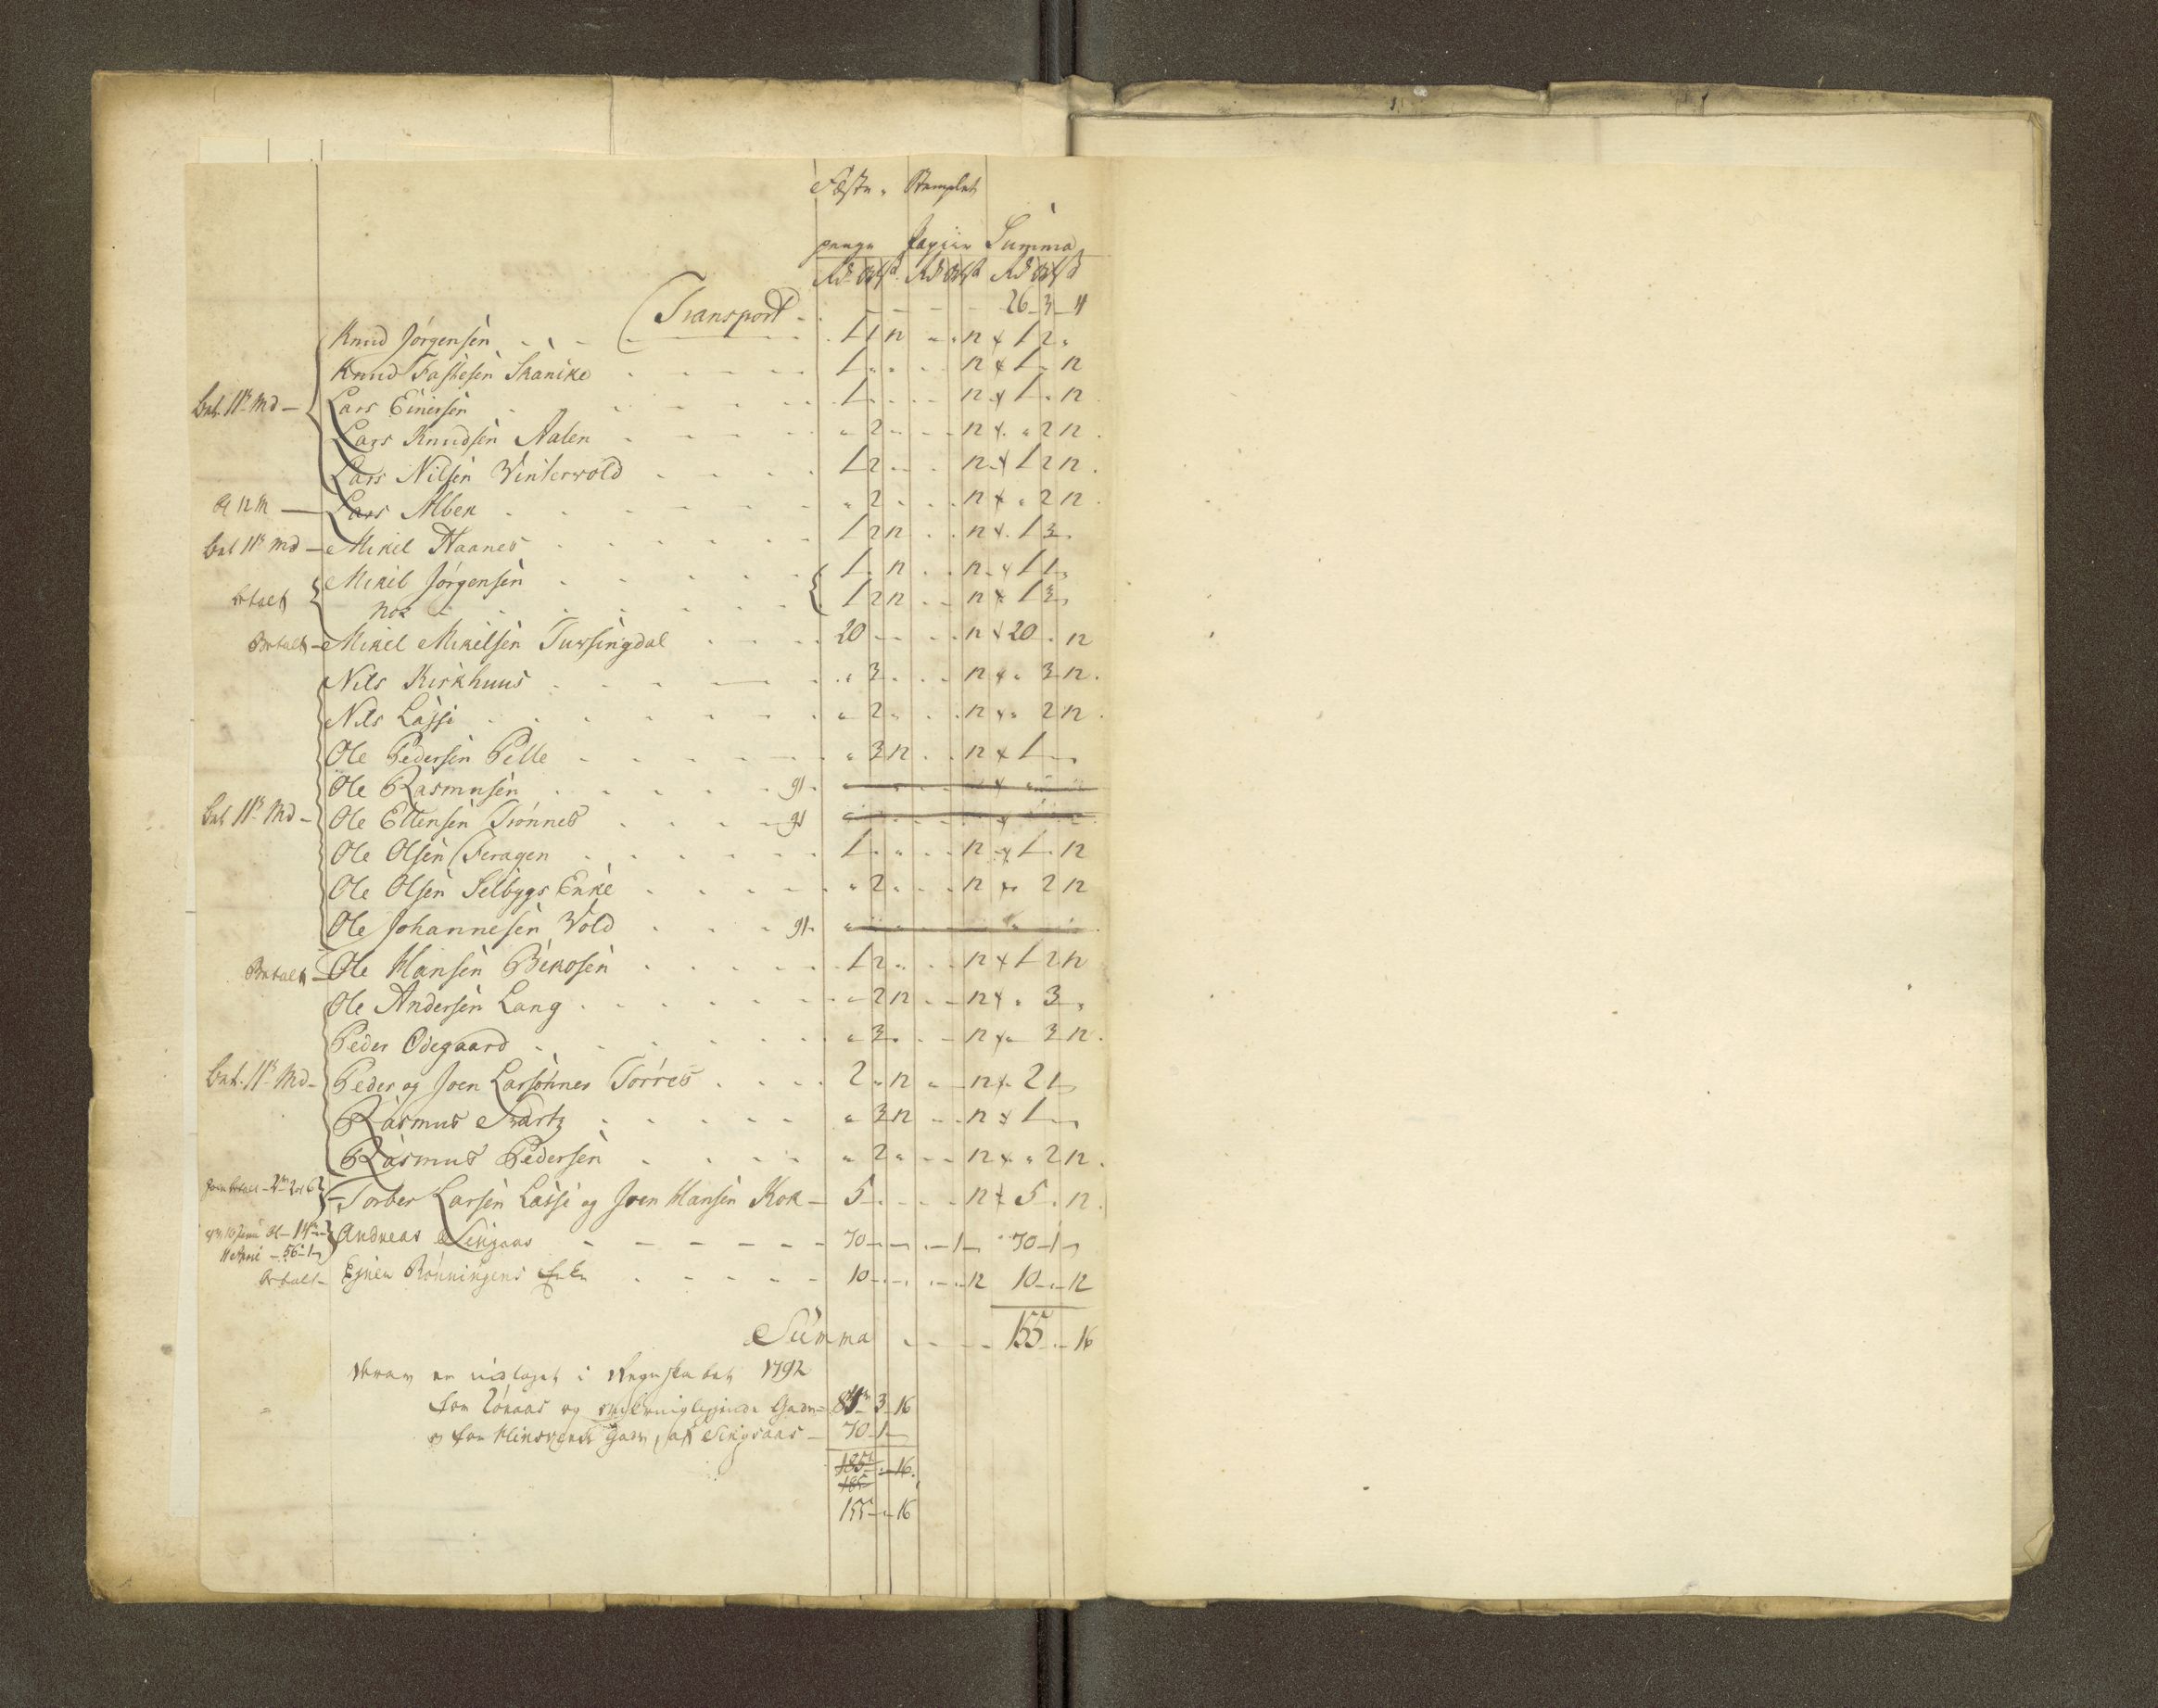 Fæste- Stemplet
penge Papiir Summa
Rd Ort ß Rd Ort ß Rd Ort ß
Transport - 26 - 3 - 4
Knud Jörgensen 1 1 12 12 1 2
Knud Fastesen Skanike 1 12 1 12
bet. 11te Md - Lars Einersen 1 12 1 12
Lars Knudsen Aalen 2 12 2 12
Lars Nilsen Winterwold 1 2 12 1 2 12
Lars Alben 2 12 2 12
bet 11te Md - Mikel Haanes 1 2 12 12 1 3
Mikel Jörgensen 1 12 12 1 1
betalt nok 1 2 12 12 1 3
Betalt - Mikel Mikelsen Tufsingdal 20 12 20 12
Nils Kirkhuus 3 12 3 12
Nils Lassi 2 12 2 12
Ole Pedersen Pelle 3 12 12 1
Ole Rasmusen
bet 11te Md - Ole Ellensen Trönnes
Ole Olsen Feragen 1 12 1 12
Ole Olsen Selbygs Enke 2 12 2 12
Ole Johannesen Wold
Betalt - Ole Hansen Bekosen 1 2 12 1 2 12
Ole Andersen Lang 2 12 12 3
Peder Ödegaard 3 12 3 12
bet. 11te Md - Peder og Joen Larsönner Torres 2 12 12 2 1
Rasmus Svartz 3 12 12 1
Rasmus Pedersen 2 12 2 12
Torber Larsen Lassi og Joen Hansen Kok - 5 12 5 12
Andreas Singsaas 70 1 70 - 1
betalt - Ejner Rönningens Enke 10 12 10 12
Summa 155 - 16
Hvoraf er indtaget i Regnskabet 1792
for Röraas og Gaarde - 84 - 3 - 16
og for Gaard, af Singsaas - 70 - 1
185 - 16
185
155 - 16